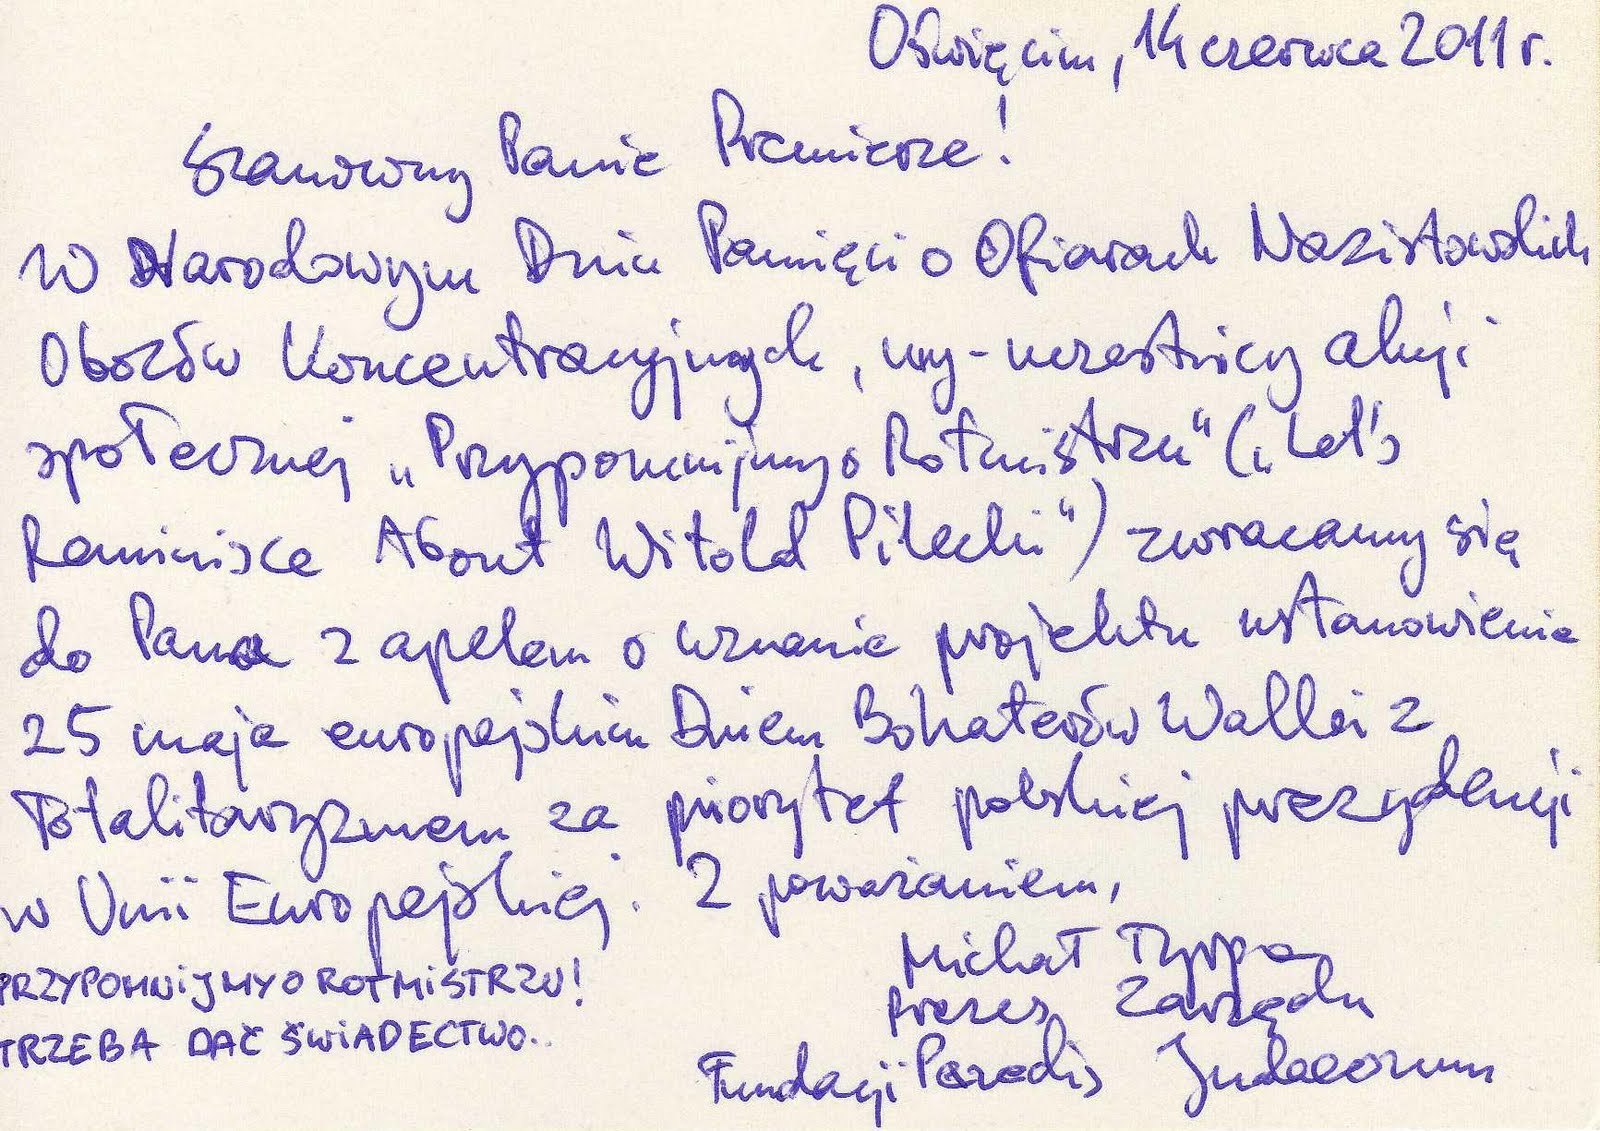 Oświęcim, 14 czerwca 2011 r.
Szanowny Panie Premierze!
W Narodowym Dniu Pamięci o Ofiarach Nazistowskich
Obozów Koncentracyjnych, my - uczestnicy akcji
społecznej „Przypomnijmy o Rotmistrzu" („Let's
Reminisce About Witold Pilecki") zwracamy się
do Pana z apelem o uznanie projektu ustanowienia
25 maja europejskim Dniem Bohaterów Walki z
Totalitaryzmem za priorytet polskiej prezydencji
w Unii Europejskiej. Z poważaniem,
Michał Tyrpa
Prezes Zarządu
Fundacji Paradis Judaeorum
PRZYPOMNIJMY O ROTMISTRZU!
TRZEBA DAĆ ŚWIADECTWO..